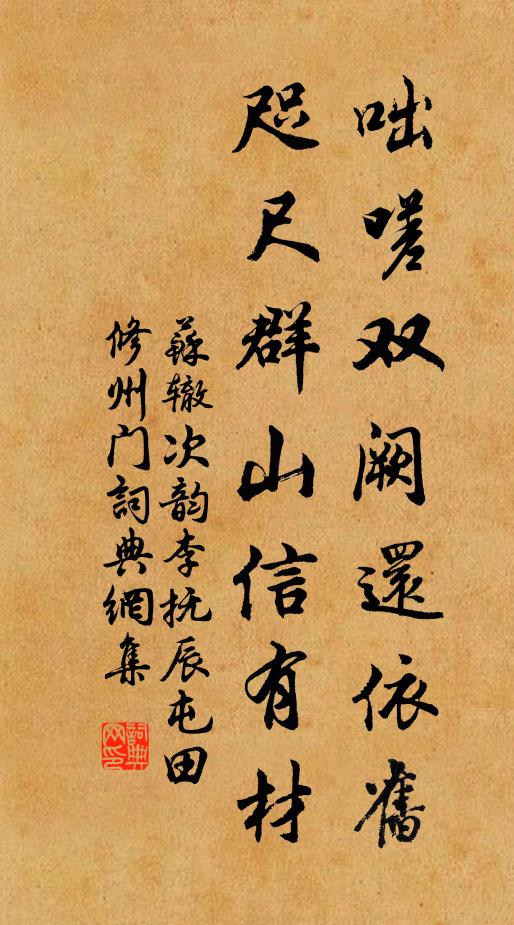 咄嗟双阙還依舊
咫尺群山信有材
蘇辙次韵李抚辰屯田
修州门詞典網集
詞典網印